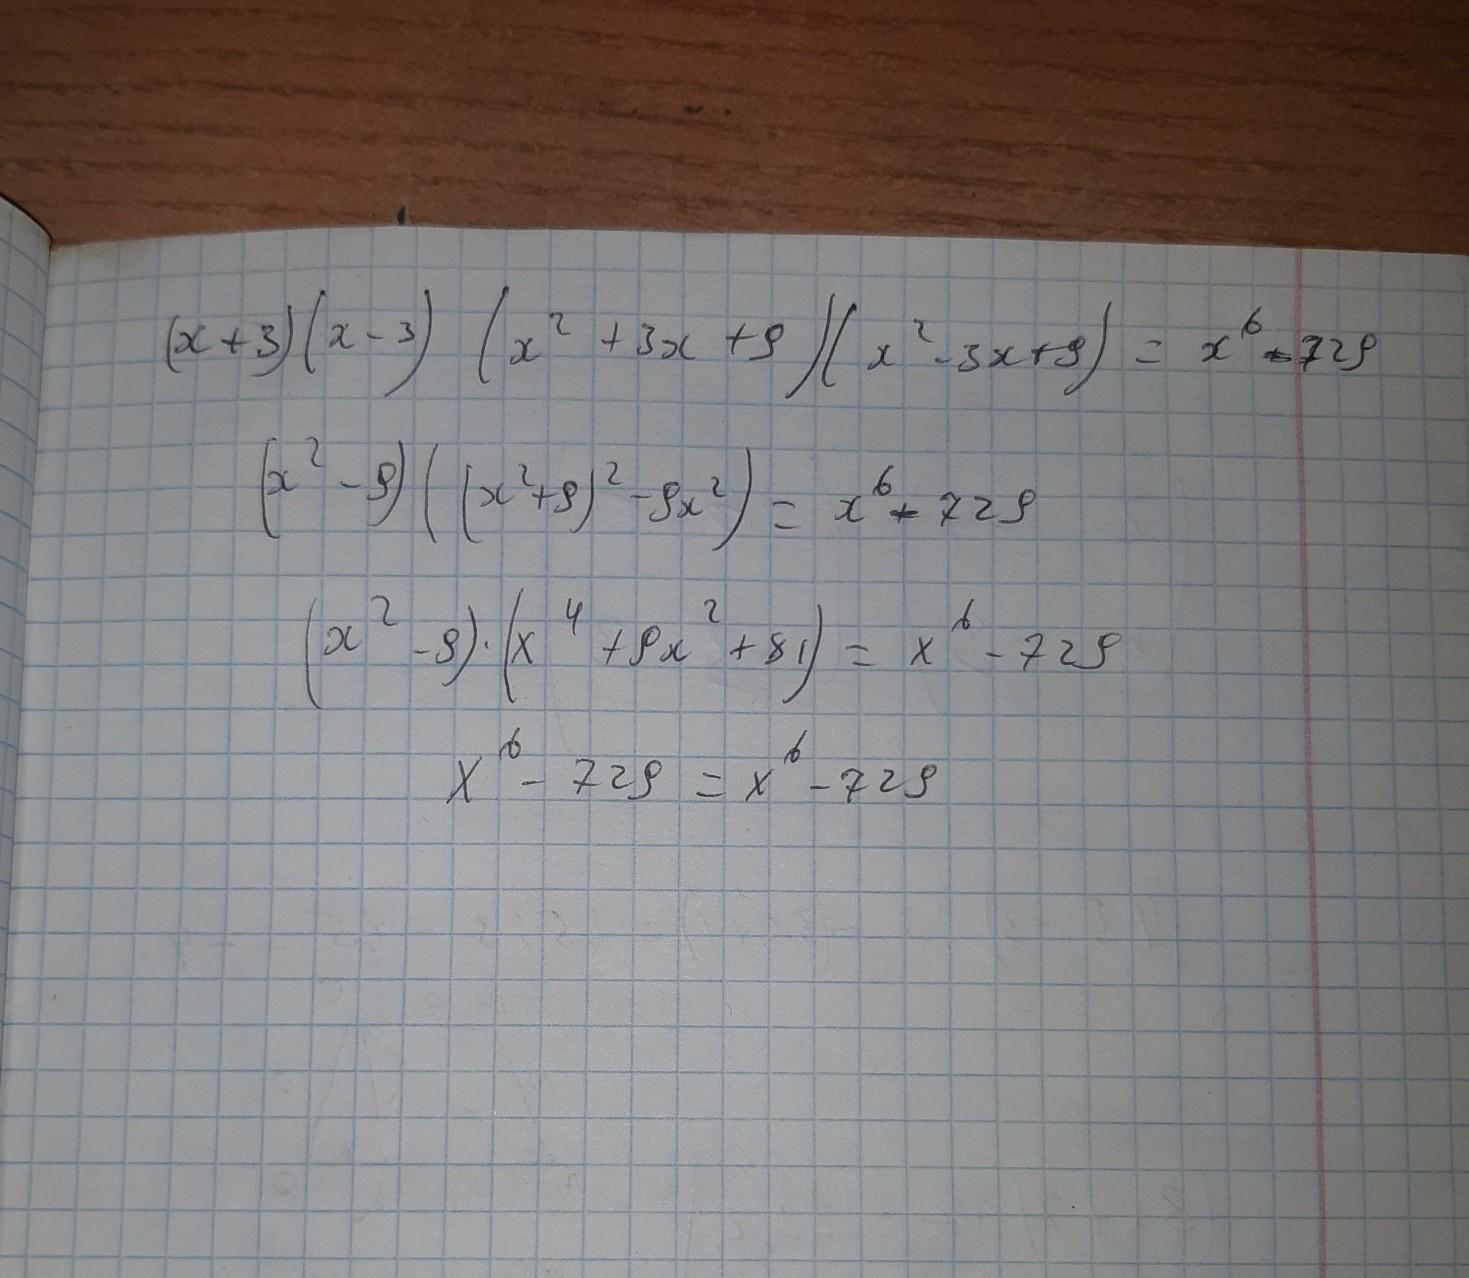 (x+3)(x-3) (x² +3x +9)(x² -3x+9) = x⁶ - 729
(x² -9)((x²+9)² -9x²) = x⁶ - 729
(x² -9)·(x⁴ +9x² +81) = x⁶ - 729
x⁶ - 729 = x⁶ - 729